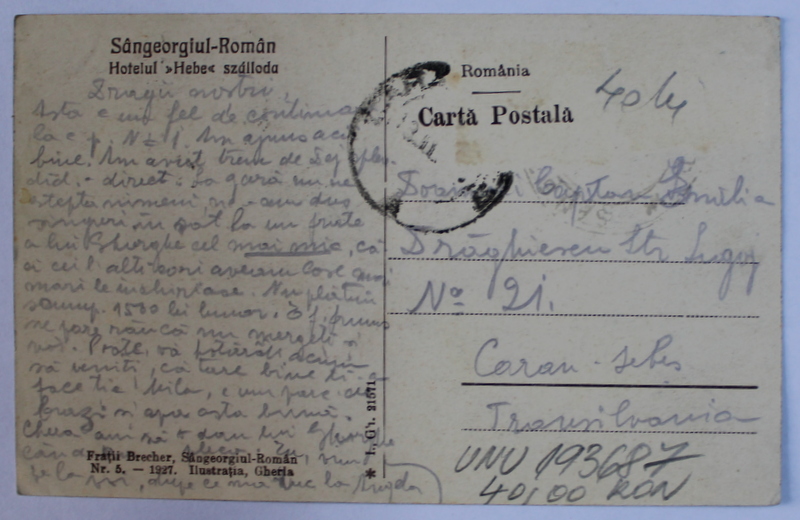 Sângeorgiul-Român
Hotelul »Hebe« szálloda
Dragii nostri,
Asta e un fel de continuare
la c. p. No 1. Am ajuns aci
bine. Am avut tren de Dej
did. - direct. La gară nu ne
astepta nimeni, ne-am dus
singuri in sat la un frate
a lui Gheorghe cel mai mic, că
ai cei l'alti
mari le inchiriase. Nu plătim
1500 lei lunar. E f. frumos
ne pare rău că nu mergeti si
voi. Poate vă hotărâti acum
să veniti, că tare bine ti-
face tie Mila, e un parc de
brazi si apa asta bună.
Cheia am să o dau lui Gheorghe
când
pe la voi, după ce mă duc la
Fraţii Brecher, Sângeorgiul-Român
Nr. 5. — 1927. Ilustraţia, Gherla
* I. Gh. 21571
România
Cartă Postală
40 lei
Căpitan Emilia
Drăghicescu Str. Lugoj
No 21.
Caran-sebes
Transilvania
UNU 193687
40,00 RON